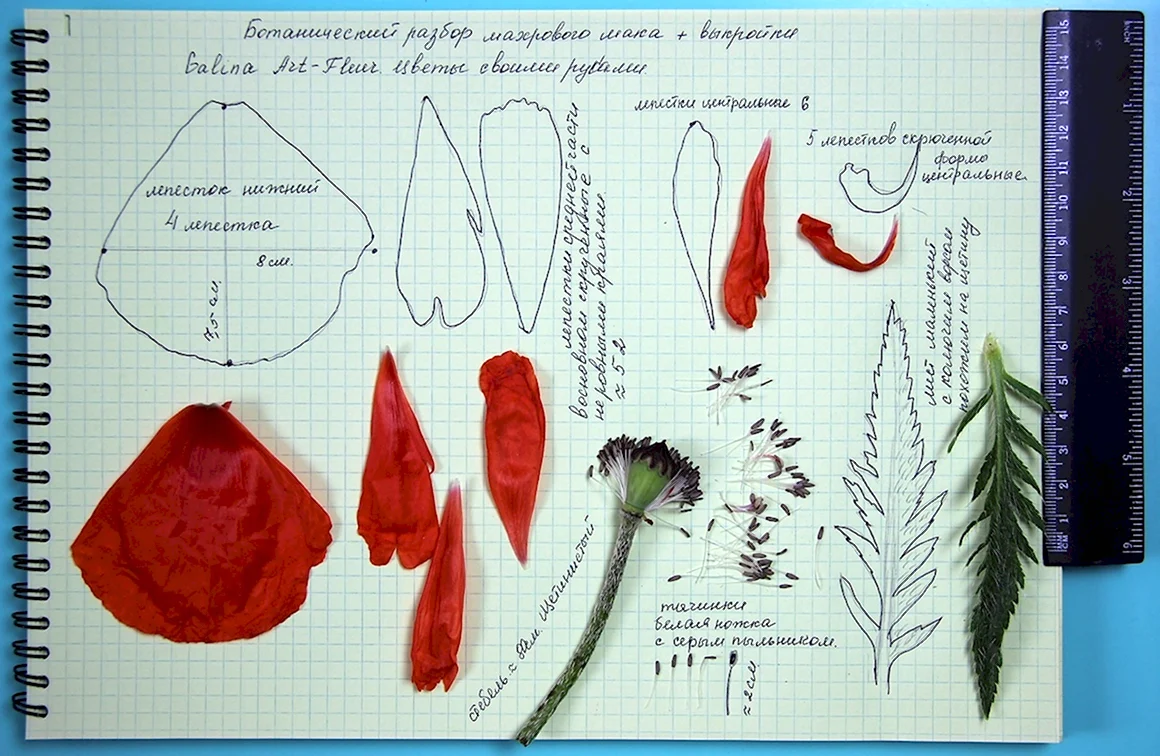 Ботанический разбор махрового мака + выкройки
Galina Art-Fleur. Цветы своими руками.
лепесток нижний
4 лепестка
8 см.
7,5 см.
лепестки средней части
восновном скрученные с
неровными краями.
≈ 5 2
лепестки центральные 6
5 лепестков скрюченной
формы
центральные.
лист маленький
с колючим ворсом
похожим на щетину
стебель ≈ см. Щетинистый
тычинки
белая ножка
с серым пыльником.
≈ 2 см.
15
14
13
12
11
10
9
8
7
6
5
4
3
2
1